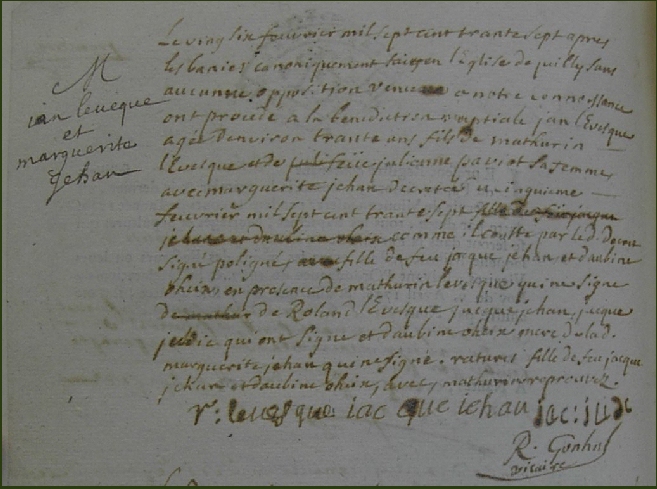 M
ian leveque
et
marguerite
Jehan
Le vingt six feuvrier mil sept cent trante sept apres
les banies canoniquement faites en l'Eglise de quilly sans
aucunne opposition venue a notre connoissance
ont procede a la benediction nuptiale jan l'Evesque
agé denviron trante ans fils de mathurin
l'Evesque et de julienne paviot sa femme
avec marguerite jehan decretee cinquieme
feuvrier mil sept cent trante sept fille de feu jacque
jehan et daubine oheix comme il conste par led. decret
signé poligné, fille de feu jacque jehan et daubine
oheix, en presance de mathurin levesque qui ne signe
de mathur de Roland l'Evesque jacque jehan, jacque
judic qui ont signe et daubine oheix mere de lad.
marguerite jehan qui ne signe. ratures fille de feu jacque
jehan et daubine oheix, avec, mathurin reprouvez.
r: levesque iac que iehan iac: iudic
R.
vicaire